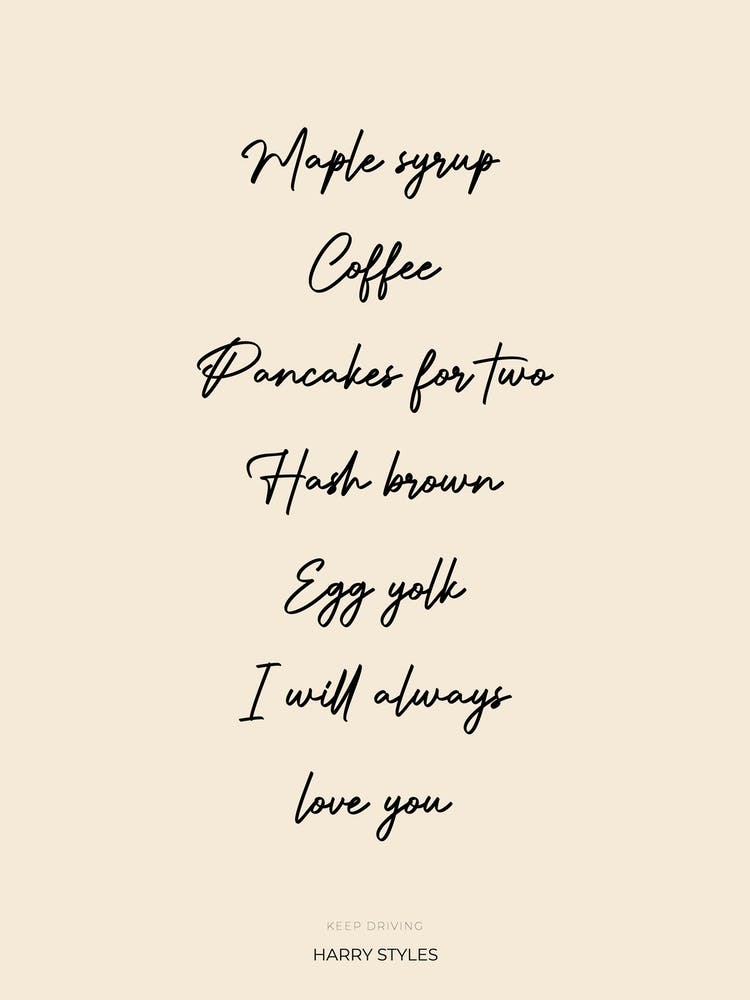 Maple syrup
Coffee
Pancakes for two
Hash brown
Egg yolk
I will always
love you
KEEP DRIVING
HARRY STYLES